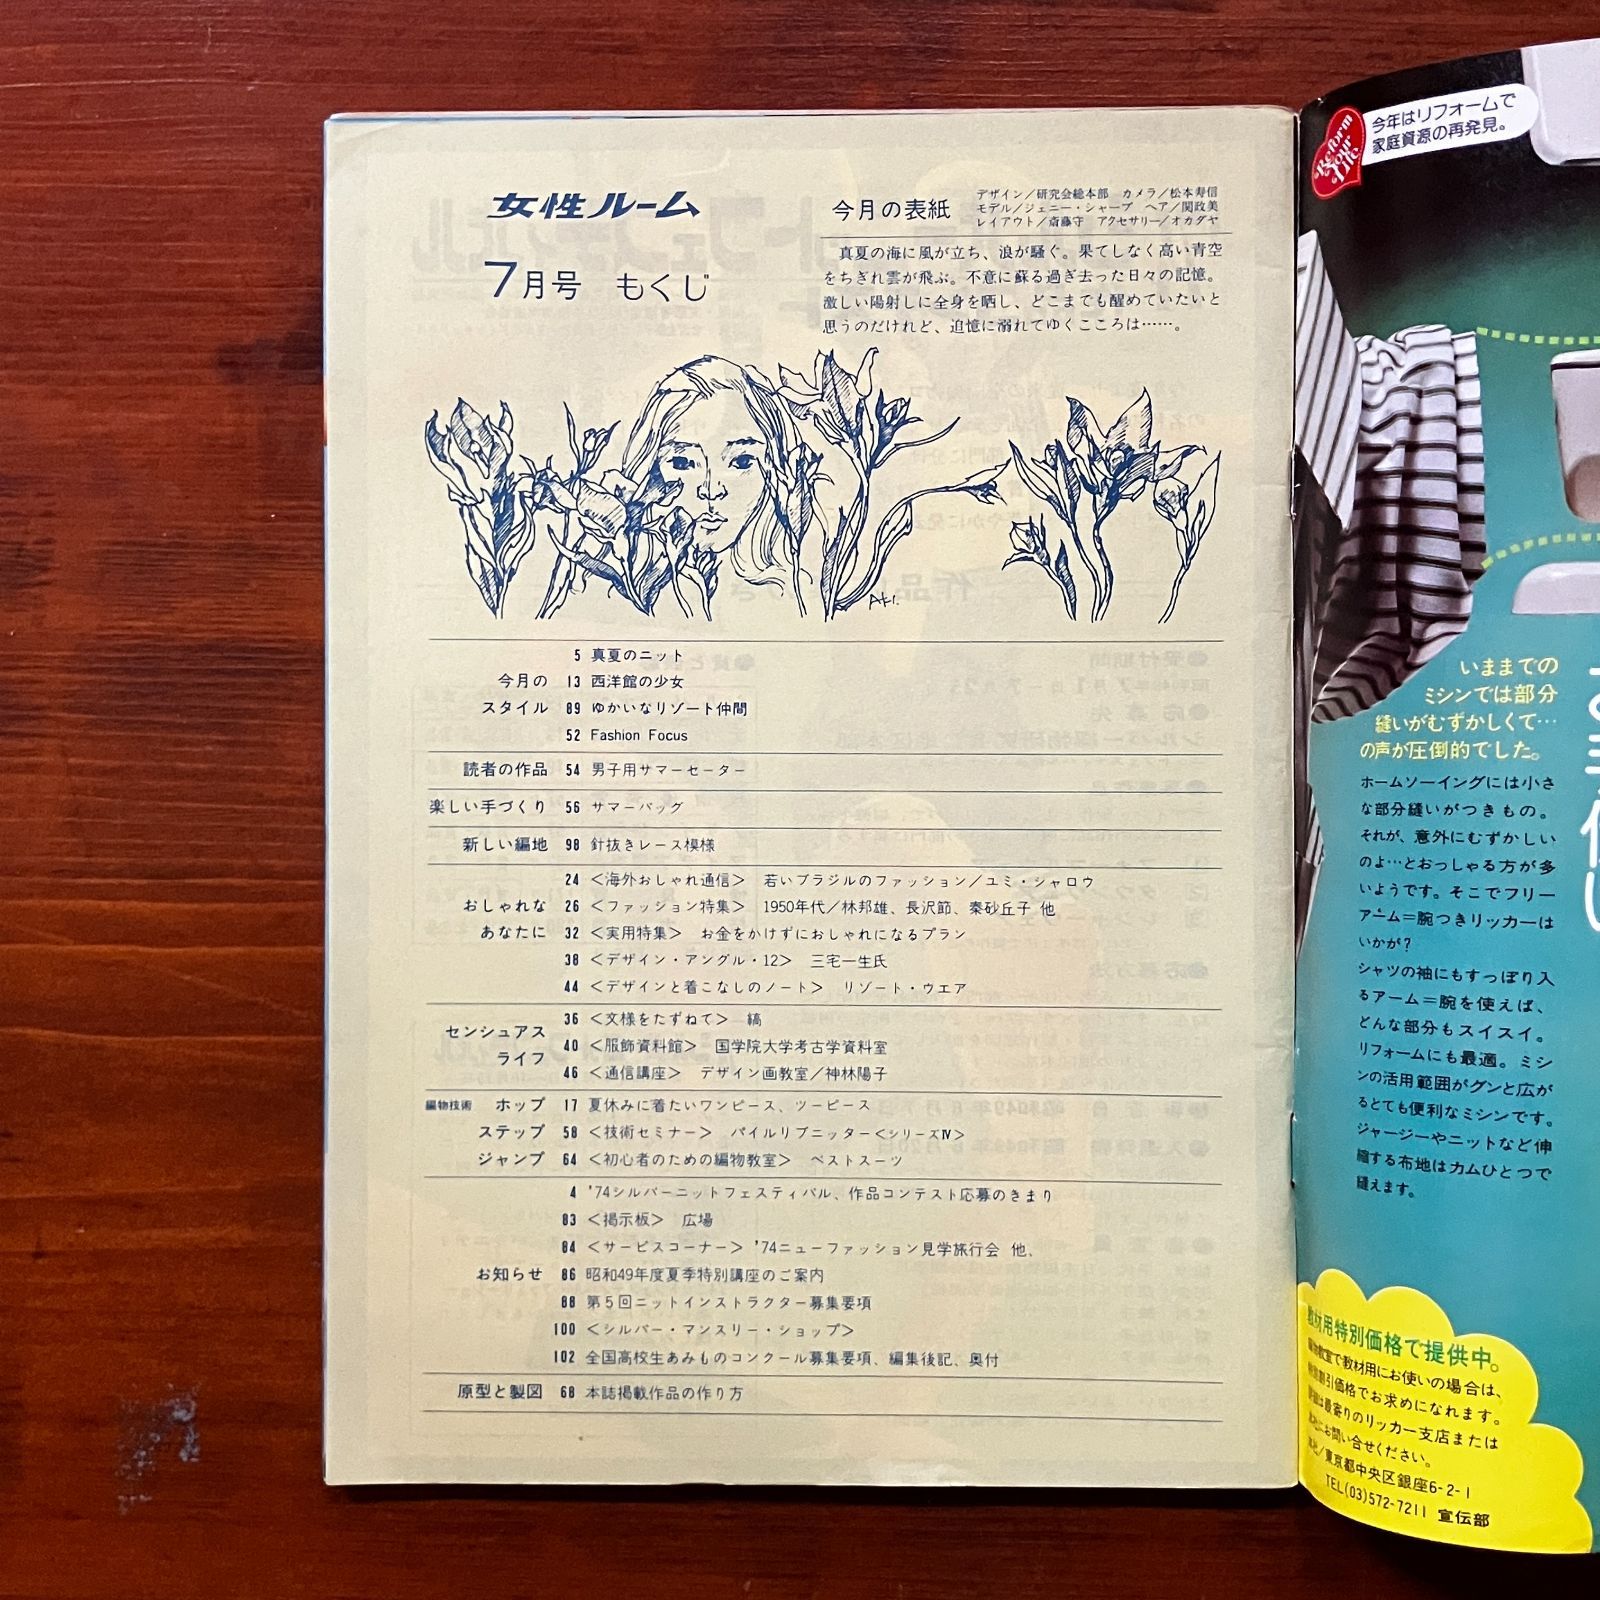 女性ルーム
7月号 もくじ
今月の表紙
デザイン/研究会総本部 カメラ/松本寿信
モデル/ジェニー・シャープ ヘア/関政美
レイアウト/斎藤守 アクセサリー/オカダヤ
真夏の海に風が立ち、浪が騒ぐ。果てしなく高い青空
をちぎれ雲が飛ぶ。不意に蘇る過ぎ去った日々の記憶。
激しい陽射しに全身を晒し、どこまでも醒めていたいと
思うのだけれど、追憶に溺れてゆくこころは……。
AKI.
今月の
スタイル
5 真夏のニット
13 西洋館の少女
89 ゆかいなリゾート仲間
52 Fashion Focus
読者の作品 54 男子用サマーセーター
楽しい手づくり 56 サマーバッグ
新しい編地 98 針抜きレース模様
おしゃれな
あなたに
24 <海外おしゃれ通信> 若いブラジルのファッション/ユミ・シャロウ
26 <ファッション特集> 1950年代/林邦雄、長沢節、秦砂丘子 他
32 <実用特集> お金をかけずにおしゃれになるプラン
38 <デザイン・アングル・12> 三宅一生氏
44 <デザインと着こなしのノート> リゾート・ウエア
センシュアス
ライフ
36 <文様をたずねて> 縞
40 <服飾資料館> 国学院大学考古学資料室
46 <通信講座> デザイン画教室/神林陽子
編物技術 ホップ 17 夏休みに着たいワンピース、ツーピース
ステップ 58 <技術セミナー> パイルリブニッター<シリーズⅣ>
ジャンプ 64 <初心者のための編物教室> ベストスーツ
お知らせ
4 '74シルバーニットフェスティバル、作品コンテスト応募のきまり
83 <掲示板> 広場
84 <サービスコーナー> '74ニューファッション見学旅行会 他、
86 昭和49年度夏季特別講座のご案内
88 第5回ニットインストラクター募集要項
100 <シルバー・マンスリー・ショップ>
102 全国高校生あみものコンクール募集要項、編集後記、奥付
原型と製図 68 本誌掲載作品の作り方
Reform
Your
Life
今年はリフォームで
家庭資源の再発見。
いままでの
ミシンでは部分
縫いがむずかしくて…
の声が圧倒的でした。
ホームソーイングには小さ
な部分縫いがつきもの。
それが、意外にむずかしい
のよ…とおっしゃる方が多
いようです。そこでフリー
アーム=腕つきリッカーは
いかが?
シャツの袖にもすっぽり入
るアーム=腕を使えば、
どんな部分もスイスイ。
リフォームにも最適。ミシ
ンの活用範囲がグンと広が
るとても便利なミシンです。
ジャージーやニットなど伸
縮する布地はカムひとつで
縫えます。
教材用特別価格で提供中。
教室で教材用にお使いの場合は、
割引価格でお求めになれます。
最寄りのリッカー支店または
にお問い合せください。
東京都中央区銀座6-2-1
TEL(03)572-7211 宣伝部